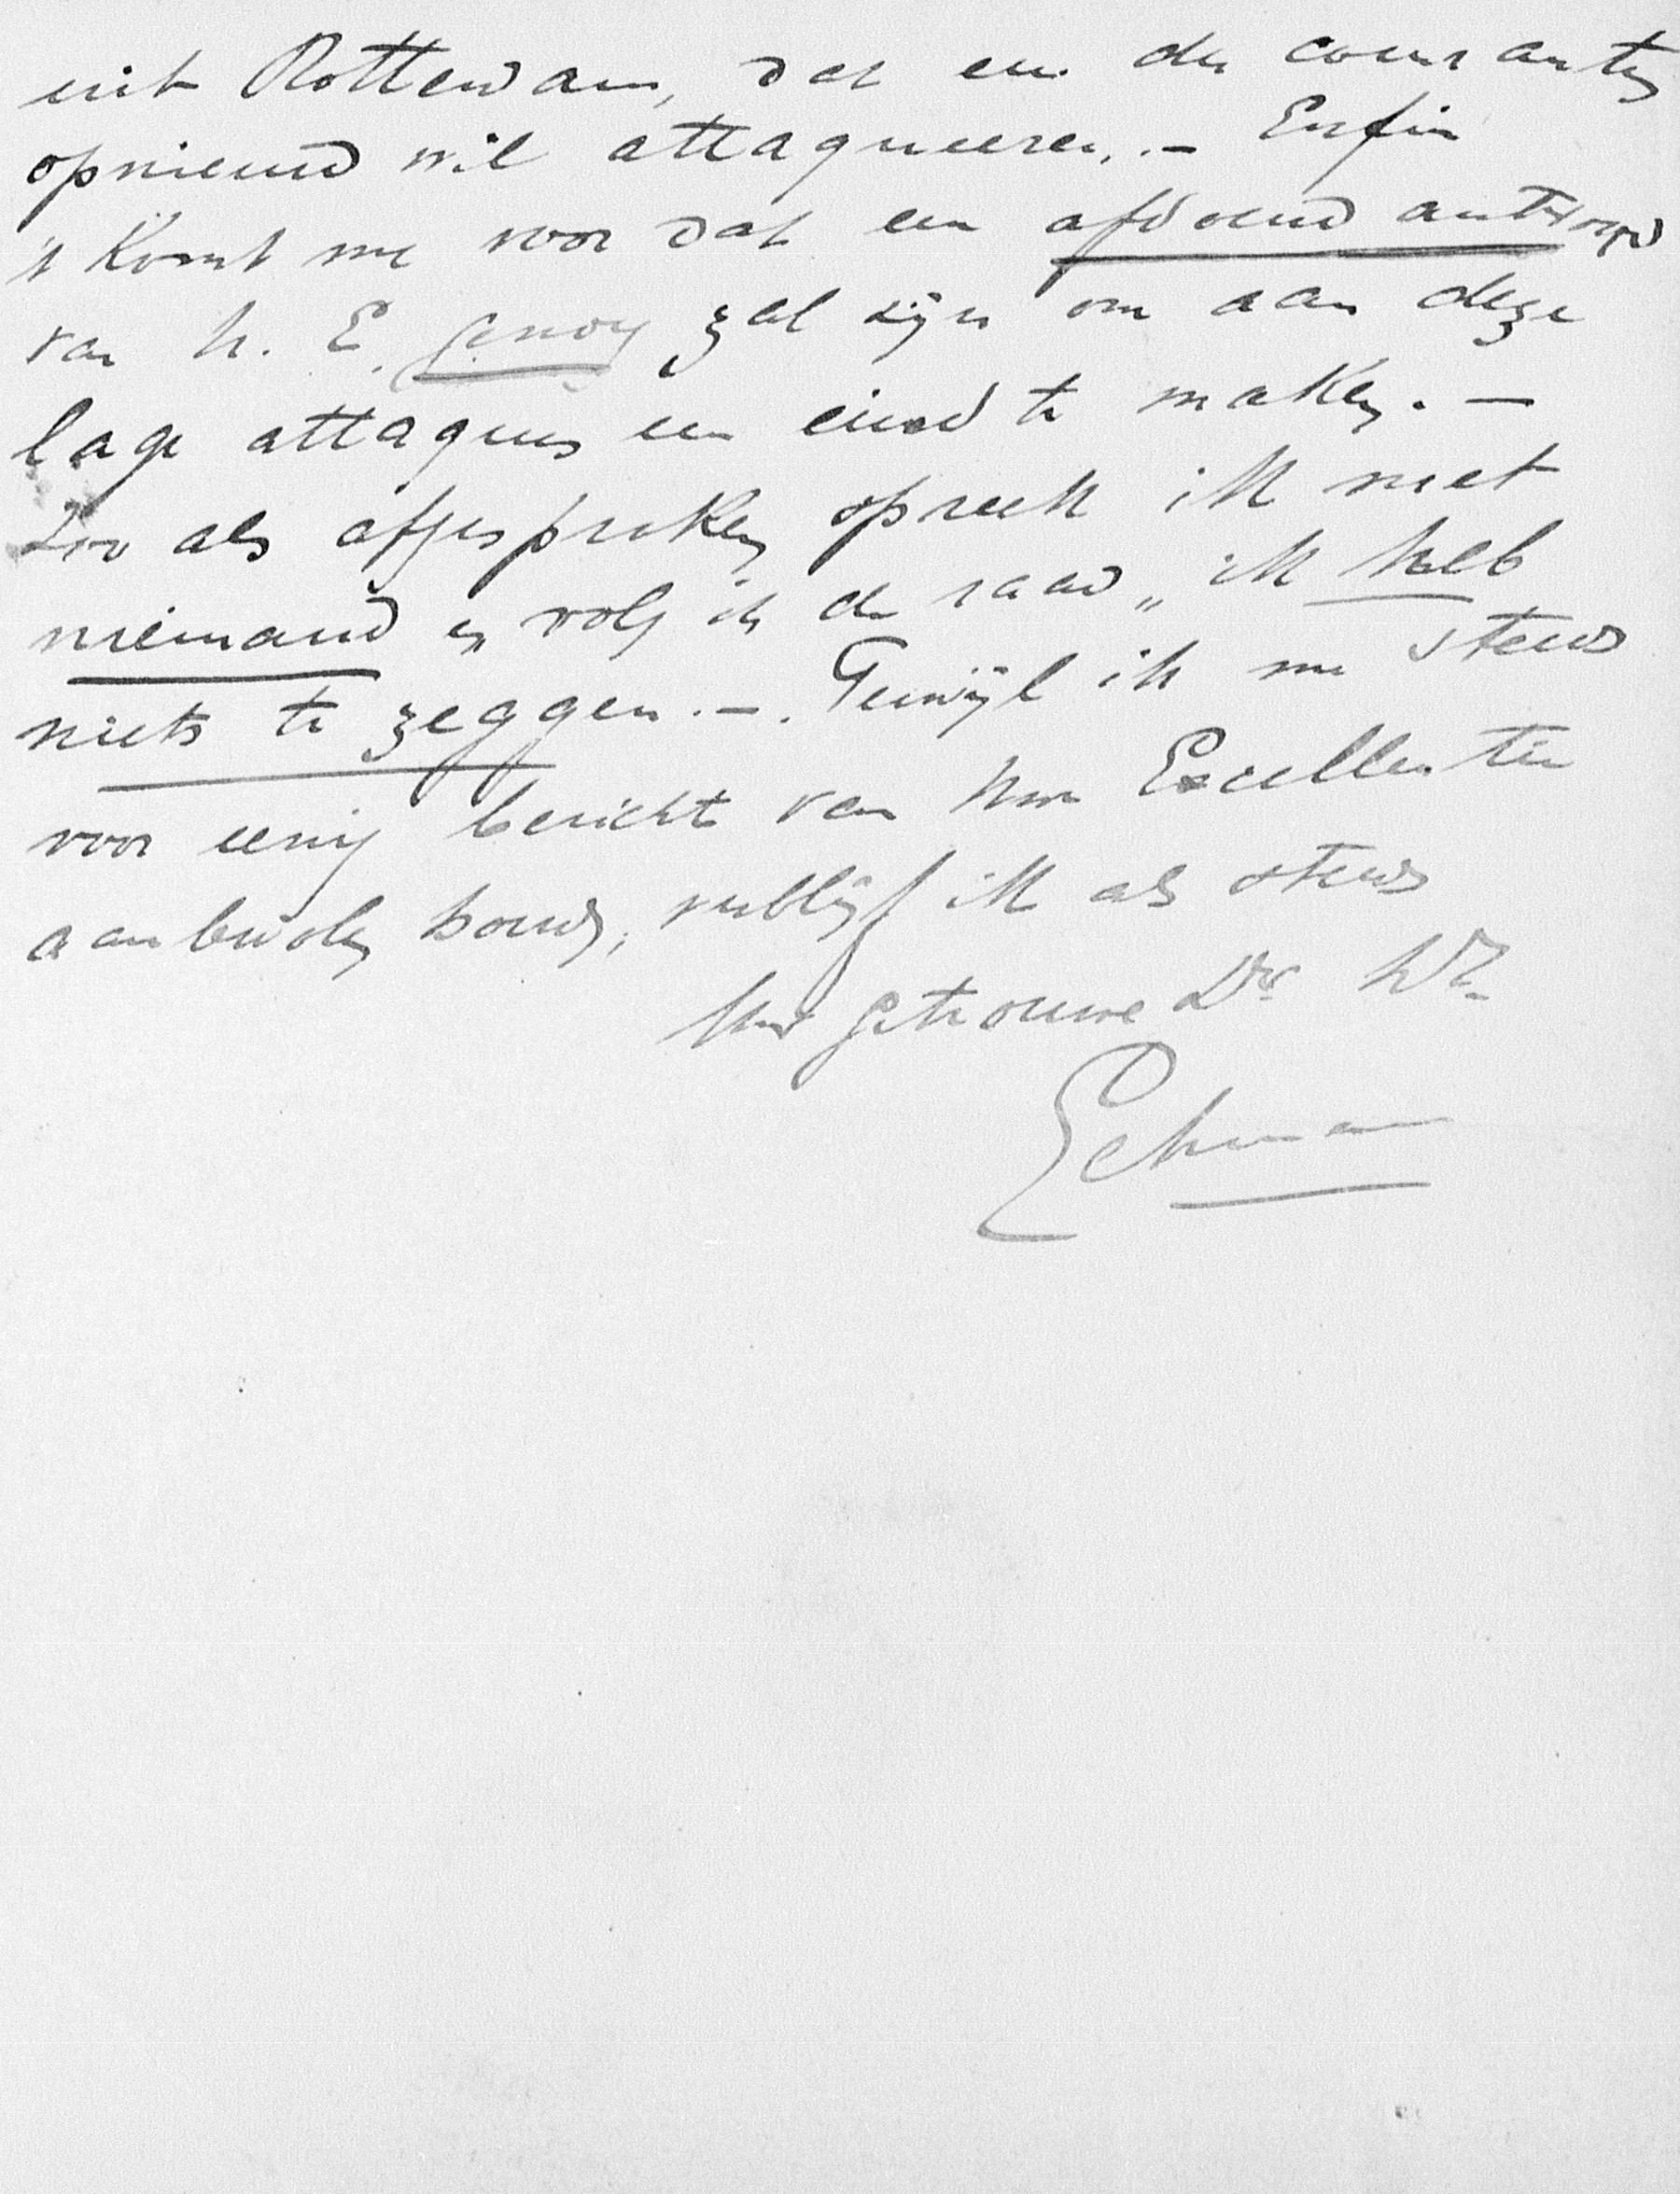 uit Rotterdam, dat een der couranten
opnieuw wil attaqueeren. – Enfin
't Komt me voor dat een afdoend antwoord
van U. E. genoeg zal zijn om aan deze
lage attaques een eind te maken. –
Zoo als afgesproken spreek ik met
niemand en volg ik de raad „ ik heb
niets te zeggen. – . Terwijl ik me steeds
voor eenig bericht van Uw Excellentie
aanbevolen houd, verblijf ik als steeds
Uw getrouwe Dr